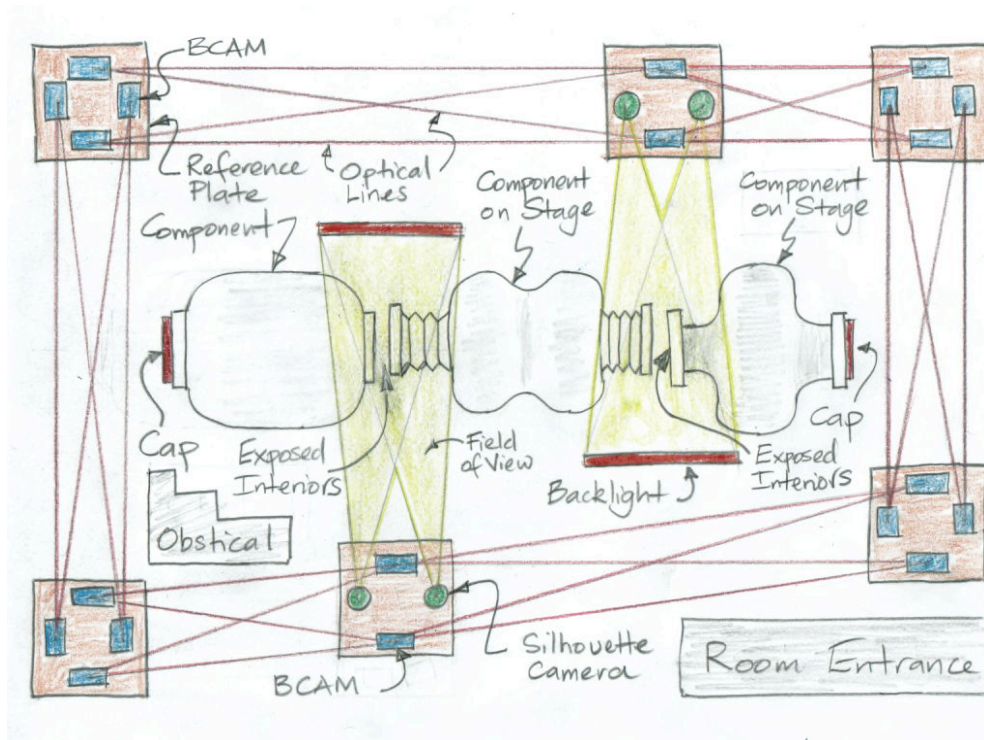 BCAM
Reference
Plate
Optical
Lines
Component
on Stage
Component
on Stage
Component
Cap
Exposed
Interiors
Field
of View
Backlight
Exposed
Interiors
Cap
Obstical
Silhouette
Camera
BCAM
Room Entrance